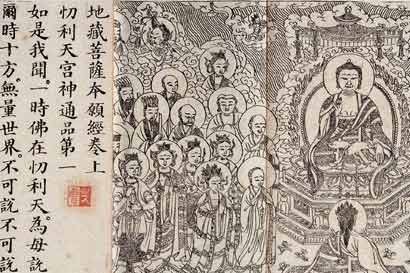 地藏菩薩本願經卷上
忉利天宮神通品第一
如是我聞。一時佛在忉利天。為母說
爾時十方。無量世界。不可說不可說